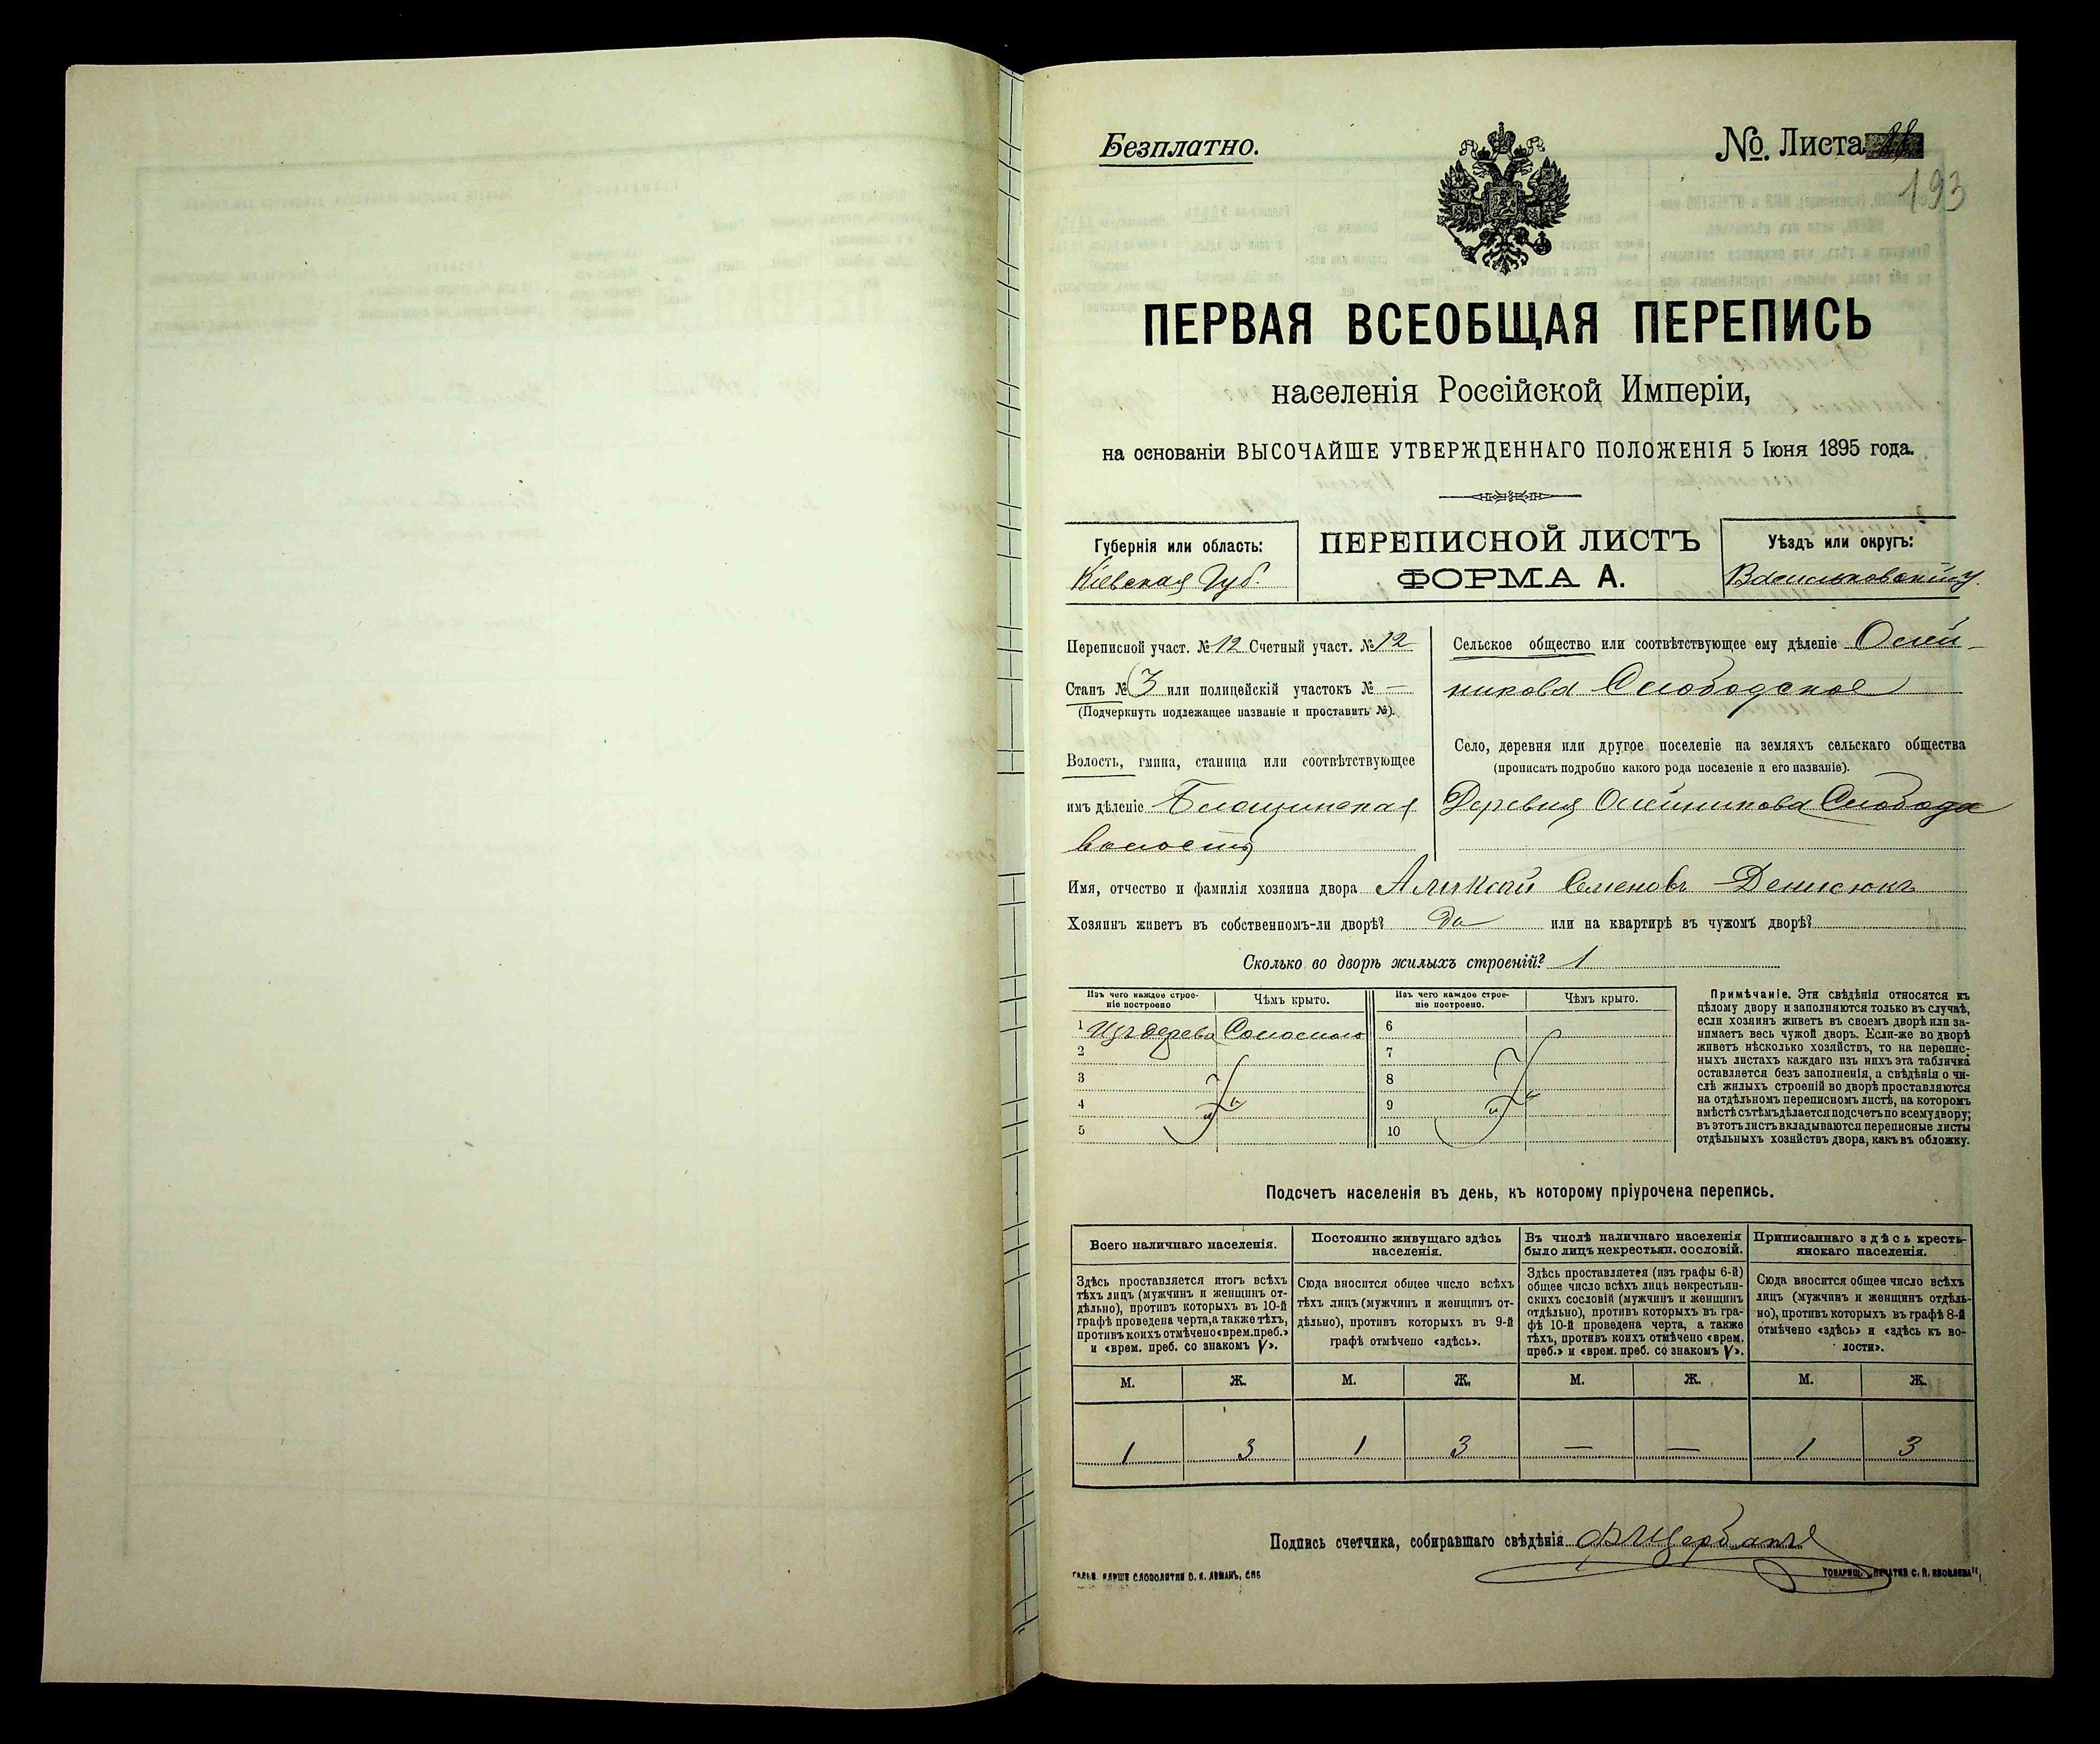 Безплатно.
№ Листа
193
ПЕРВАЯ ВСЕОБЩАЯ ПЕРЕПИСЬ
населенія Россійской Имперіи,
на основаніи ВЫСОЧАЙШЕ УТВЕРЖДЕННАГО ПОЛОЖЕНІЯ 5 Іюня 1895 года.
Губернія или область:
Кіевская Губ.
ПЕРЕПИСНОЙ ЛИСТЪ
ФОРМА А.
Уѣздъ или округъ:
Васильковскій у.
Переписной участ. № 12 Счетный участ. № 12
Станъ № 3 или полицейскій участокъ № —
(Подчеркнуть подлежащее названіе и проставить №).
Волость, гмина, станица или соотвѣтствующее
имъ дѣленіе Блощинская
волость
Сельское общество или соотвѣтствующее ему дѣленіе Олей-
никова Слободское
Село, деревня или другое поселеніе на земляхъ сельскаго общества
(прописать подробно какого рода поселеніе и его названіе).
Деревня Олейникова Слобода
Имя, отчество и фамилія хозяина двора Семеновъ Денисюкъ
Хозяинъ живетъ въ собственномъ-ли дворѣ? Да или на квартирѣ въ чужомъ дворѣ?
Сколько во дворѣ жилыхъ строеній? 1
Изъ чего каждое строе-
ніе построено
Чѣмъ крыто.
Изъ чего каждое строе-
ніе построено.
Чѣмъ крыто.
1 Изъ дерева Соломою
2
3
4
5
6
7
8
9
10
Примѣчаніе. Эти свѣдѣнія относятся къ
цѣлому двору и заполняются только въ случаѣ,
если хозяинъ живетъ въ своемъ дворѣ или за-
нимаетъ весь чужой дворъ. Если-же во дворѣ
живетъ нѣсколько хозяйствъ, то на перепис-
ныхъ листахъ каждаго изъ нихъ эта табличка
оставляется безъ заполненія, а свѣдѣнія о чи-
слѣ жилыхъ строеній во дворѣ проставляются
на отдѣльномъ переписномъ листѣ, на которомъ
вмѣстѣ съ тѣмъ дѣлается подсчетъ по всему двору;
въ этотъ листъ вкладываются переписные листы
отдѣльныхъ хозяйствъ двора, какъ въ обложку.
Подсчетъ населенія въ день, къ которому пріурочена перепись.
Всего наличнаго населенія.
Здѣсь проставляется итогъ всѣхъ
тѣхъ лицъ (мужчинъ и женщинъ от-
дѣльно), противъ которыхъ въ 10-й
графѣ проведена черта, а также тѣхъ,
противъ коихъ отмѣчено «врем. преб.»
и «врем. преб. со знакомъ V».
Постоянно живущаго здѣсь
населенія.
Сюда вносится общее число всѣхъ
тѣхъ лицъ (мужчинъ и женщинъ от-
дѣльно), противъ которыхъ въ 9-й
графѣ отмѣчено «здѣсь».
Въ числѣ наличнаго населенія
было лицъ некрестьян. сословій.
Здѣсь проставляется (изъ графы 6-й)
общее число всѣхъ лицъ некрестьян-
скихъ сословій (мужчинъ и женщинъ
отдѣльно), противъ которыхъ въ гра-
фѣ 10-й проведена черта, а также
тѣхъ, противъ коихъ отмѣчено «врем.
преб.» и «врем. преб. со знакомъ V».
Приписаннаго здѣсь кресть-
янскаго населенія.
Сюда вносится общее число всѣхъ
лицъ (мужчинъ и женщинъ отдѣль-
но), противъ которыхъ въ графѣ 8-й
отмѣчено «здѣсь» и «здѣсь къ во-
лости».
М. Ж. М. Ж. М. Ж. М. Ж.
1 3 1 3 — — 1 3
Подпись счетчика, собиравшаго свѣдѣнія Ф Щербакъ
СЛОВОЛИТНИ О. И. ЛЕМАНЪ, СПБ
ТОВАРИЩ. „ПЕЧАТНЯ С. П. ЯКОВЛЕВА“